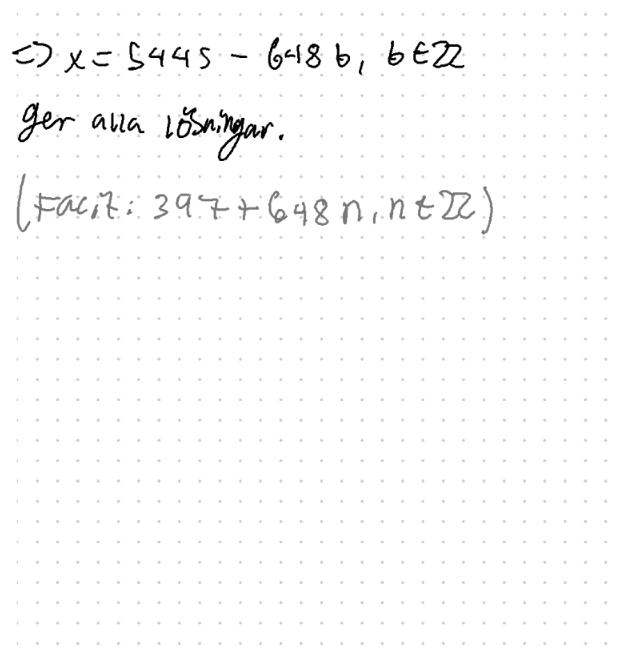 => x = 5445 - 648 b, b ∈ ℤ
ger alla lösningar.
(Facit: 397 + 648 n, n ∈ ℤ)